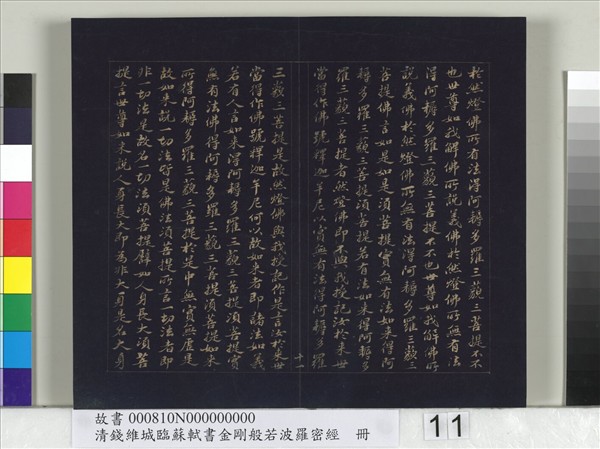 於然燈佛所有法得阿耨多羅三藐三菩提不不
也世尊如我解佛所說義佛於然燈佛所無有法
得阿耨多羅三藐三菩提不不也世尊如我解佛所
說義佛於然燈佛所無有法得阿耨多羅三藐三
菩提佛言如是如是須菩提實無有法如來得阿
耨多羅三藐三菩提須菩提若有法如來得阿耨多
羅三藐三菩提者然燈佛即不與我授記汝於來世
當得作佛號釋迦牟尼以實無有法得阿耨多羅
十一
三藐三菩提是故然燈佛與我授記作是言汝於來世
當得作佛號釋迦牟尼何以故如來者即諸法如義
若有人言如來得阿耨多羅三藐三菩提須菩提實
無有法佛得阿耨多羅三藐三菩提須菩提如來
所得阿耨多羅三藐三菩提於是中無實無虛是
故如來說一切法皆是佛法須菩提所言一切法者即
非一切法是故名一切法須菩提譬如人身長大須菩
提言世尊如來說人身長大即為非大身是名大身
故書 000810N000000000
清錢維城臨蘇軾書金剛般若波羅密經 冊
11